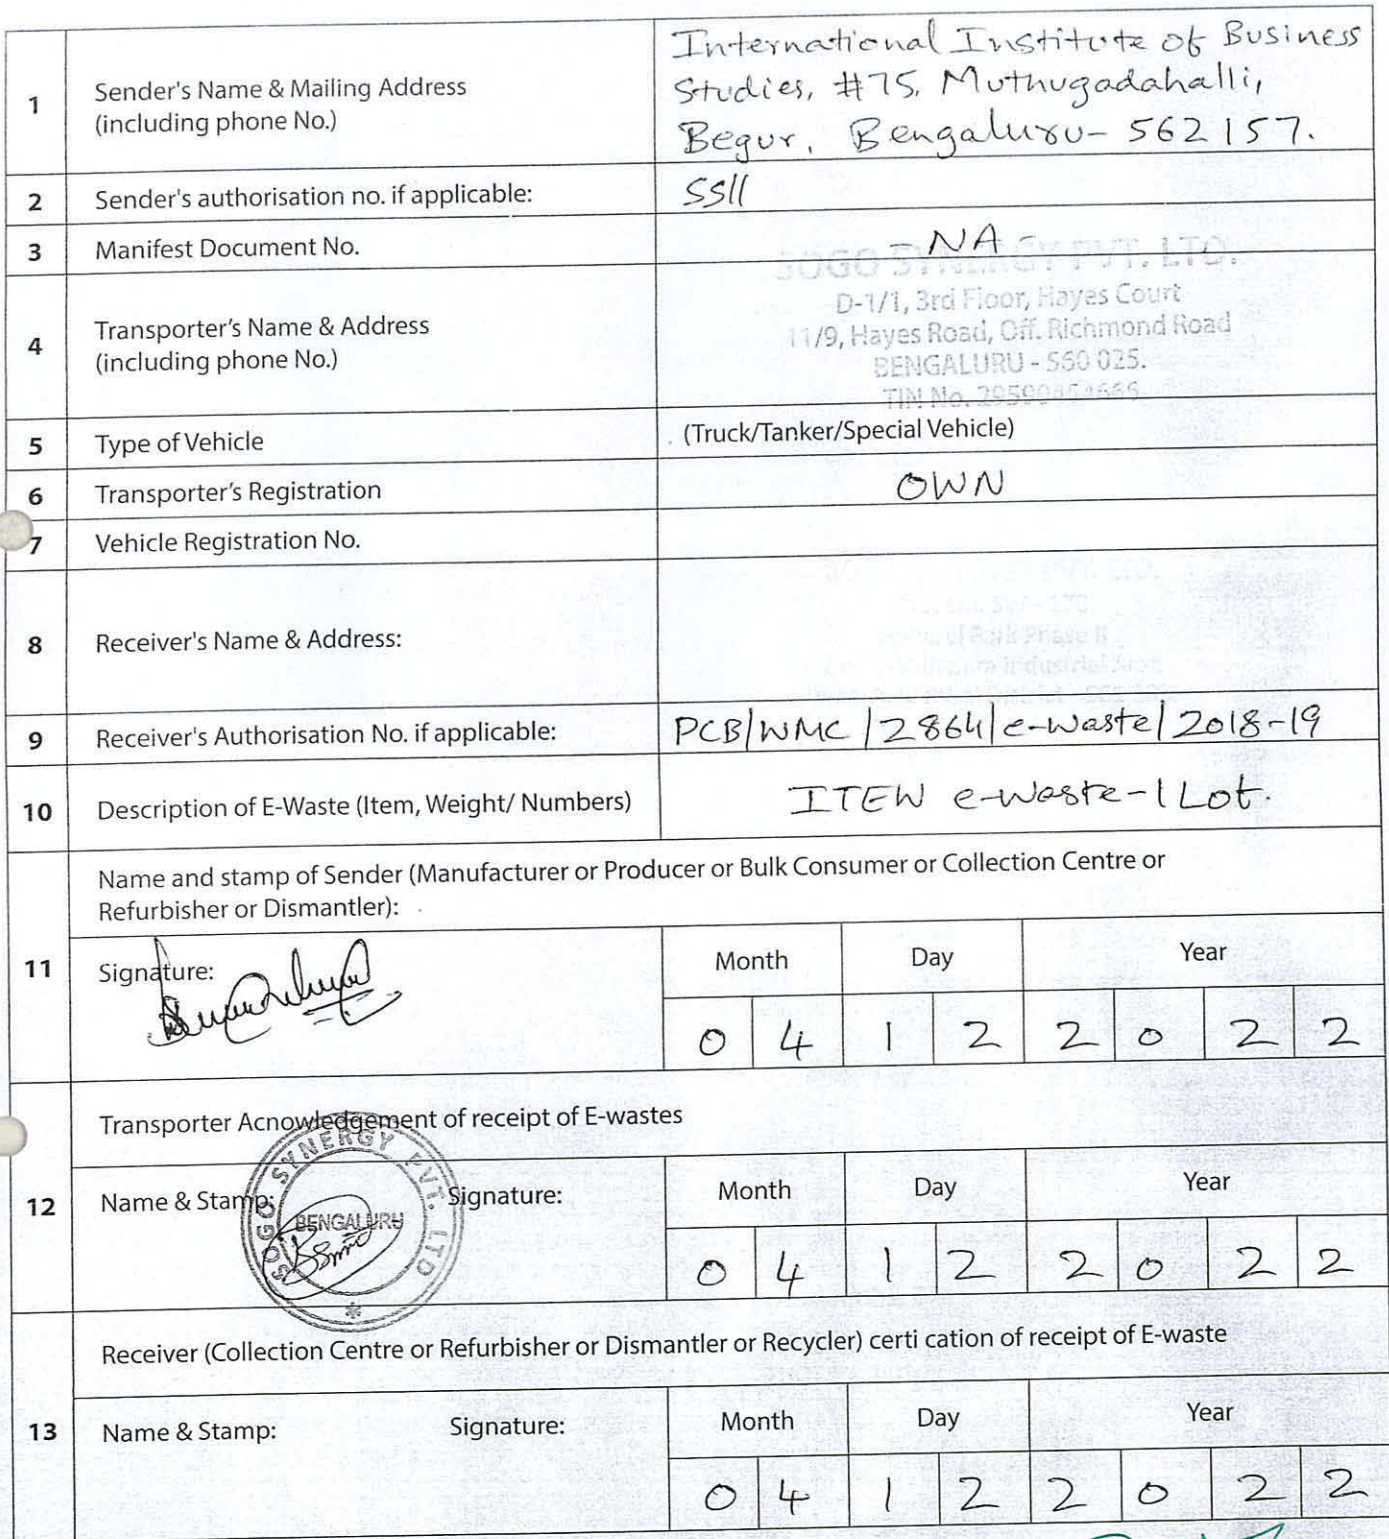 1
Sender's Name & Mailing Address
(including phone No.)
International Institute of Business
Studies, #75, Muthugadahalli,
Begur, Bengaluru- 562157.
2
Sender's authorisation no. if applicable:
SSll
3
Manifest Document No.
- NA -
4
Transporter's Name & Address
(including phone No.)
SOGO SYNERGY PVT. LTD.
D-1/1, 3rd Floor, Hayes Court
11/9, Hayes Road, Off. Richmond Road
BENGALURU - 560 025.
TIN No.
5
Type of Vehicle
(Truck/Tanker/Special Vehicle)
6
Transporter's Registration
OWN
7
Vehicle Registration No.
8
Receiver's Name & Address:
Park Phase II
Industrial Area
9
Receiver's Authorisation No. if applicable:
PCB/WMC/2864/e-waste/2018-19
10
Description of E-Waste (Item, Weight/ Numbers)
ITEW e-waste-1 Lot.
11
Name and stamp of Sender (Manufacturer or Producer or Bulk Consumer or Collection Centre or
Refurbisher or Dismantler):
Signature:
Month Day Year
0 4 1 2 2 0 2 2
12
Transporter Acnowledgement of receipt of E-wastes
Name & Stamp: Signature:
SOGO SYNERGY PVT. LTD
BENGALURU
Month Day Year
0 4 1 2 2 0 2 2
13
Receiver (Collection Centre or Refurbisher or Dismantler or Recycler) certi cation of receipt of E-waste
Name & Stamp: Signature:
Month Day Year
0 4 1 2 2 0 2 2